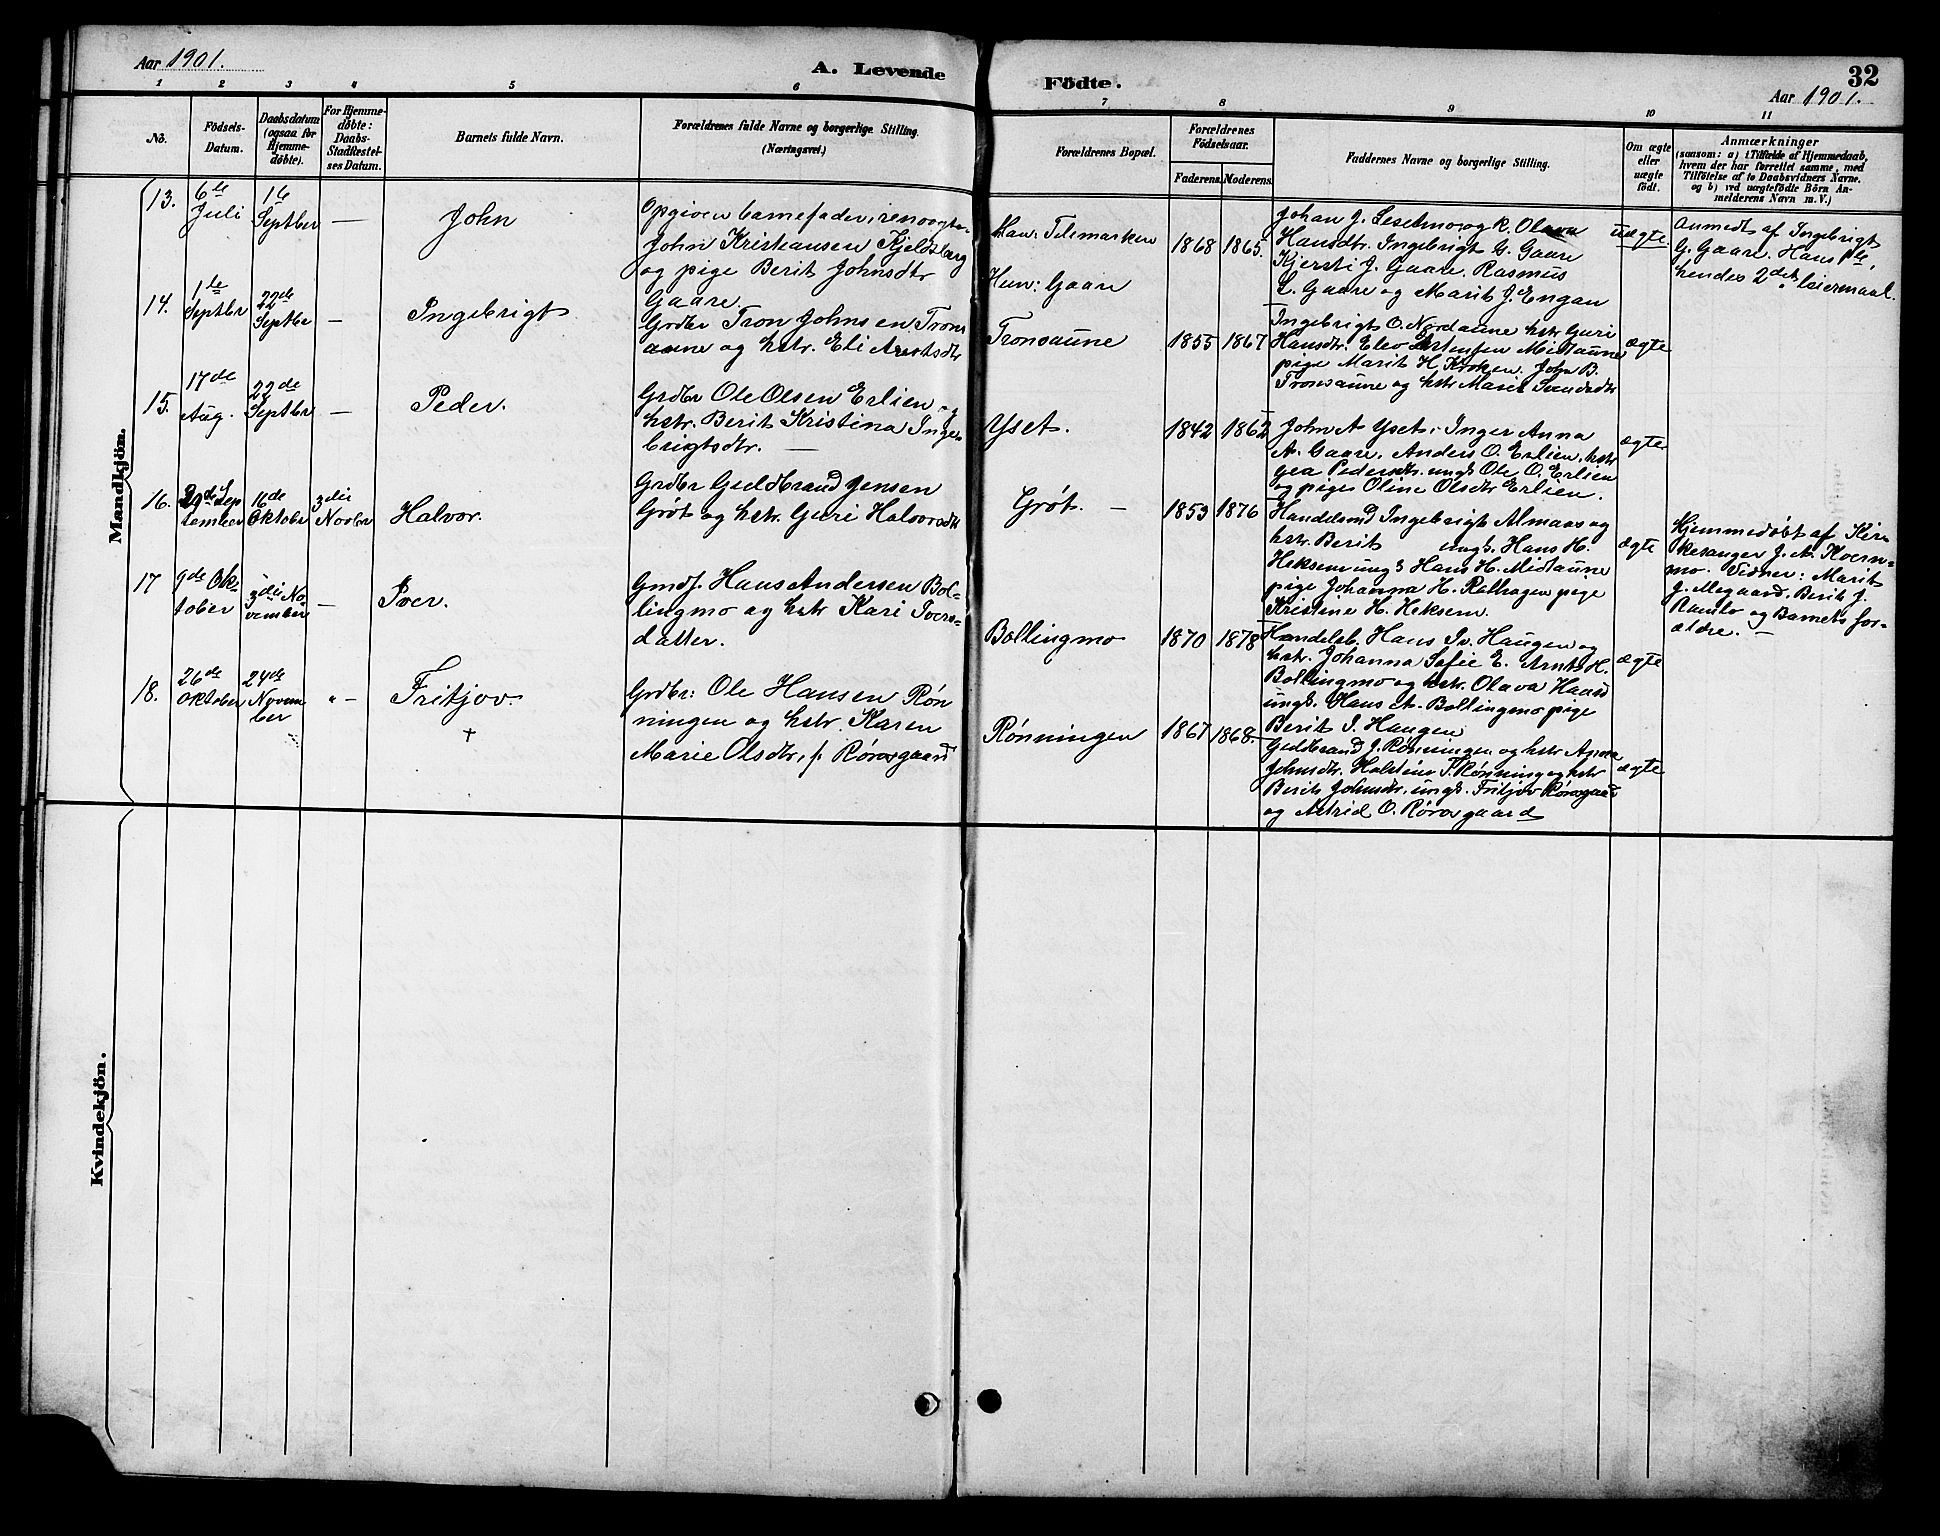 Aar 1901.
A. Levende
Födte.
32
Aar 1901.
1 2 3 4 5 6 7 8 9 10 11
No.
Födsels-
Datum.
Daabsdatum
(ogsaa for
Hjemme-
døbte).
For Hjemme-
døbte:
Daabs-
Stadfestel-
ses Datum.
Barnets fulde Navn.
Forældrenes fulde Navne og borgerlige Stilling.
(Næringsvei.)
Forældrenes Bopæl.
Forældrenes
Födselsaar.
Faderens. Moderens.
Faddernes Navne og borgerlige Stilling.
Om ægte
eller
uægte
født.
Anmærkninger
(saasom: a) i Tilfælde af Hjemmedaab,
hvem der har forrettet samme, med
Tilföielse af to Daabsvidners Navne,
og b) ved uægtefödte Börn An-
melderens Navn m. V.)
Mandkjön.
13.
6te
Juli
1te
Septber
—
John
Opgiven barnefader,
John Kristiansen Kjeldsberg
og pige Berit Johnsdtr
Gaare.
Han: Telemarken
Hun: Gaare
1868
1865.
Johan J. Sesetmo og k. Olava
Hansdtr. Ingebrigt G. Gaare
Kjersti J. Gaare. Rasmus
L. Gaare og Marit J. Engan
uægte
Anmedt af Ingebrigt
G. Gaare. Hans 1ste,
hendes 2det leiermaal.
14.
1te
Septbr
22de
Septber
—
Ingebrigt
Grdbr Tron Johnsen Trons
aune og hstr. Eli Arntsdtr
Tronsaune
1855
1867
Ingebrigt O. Nordaune hstr Guri
Hansdtr. Elev Estensen Midtaune
pige Marit H. Kroken. John B.
Tronsaune og hstr Marit
ægte
15.
17de
Aug.
22de
Septber
—
Peder.
Grdbr Ole Olsen Erlien og
hstr. Berit Kristina Inge
brigtsdtr. —
Yset.
1842
1862
John A Yset, Inger Anna
A. Gaare. Anders O. Erlien, hstr
Pedersdtr. ungk Ole O. Erlien
og pige Oline Olsdtr Erlien.
ægte
16.
29de Sep
tember
16de
Oktober
3die
Novbr
Halvor.
Grdbr Guldbrand Jensen
Grøt og hstr. Guri Halvorsdtr
Grøt. —
1853
1876
Handelsmd Ingebrigt Almaas og
hstr. Berit ungk. Hans H.
Heksem ungk Hans H. Midtaune
pige Johanna H. Ralhagen pige
Kristine H. Heksem.
ægte
Hjemmedøbt af Kir-
kesanger J. A. Kvern-
mo. Vidner: Marit
J. Mogaard, Berit J.
Ramlo og Barnets for-
ældre. —
17
9de Ok-
tober
3die No-
vember
—
Iver.
Gmdf. Hans Andersen Bol-
lingmo og hstr Kari Ivers-
datter.
Bollingmo
1870
1878
Handelsb. Hans Iv. Haugen og
hstr. Johanna Sofie E. Arnt H.
Bollingmo og hstr. Olava Hans
ungk. Hans A. Bollingmo pige
Berit I. Haugen
ægte
18.
26de
Oktober
24de
Novem
ber
" —
Fritjov.
+
Grdbr: Ole Hansen Røn
ningen og hstr. Karen
Marie Olsdtr, f. Rørosgaard
Rønningen
1867
1868.
Guldbrand J. Rønningen og hstr Anna
Johnsdtr. Halstein T. Rønning og hstr
Berit Johnsdtr. ungk. Fritjov Rørosgaard
og Astrid O. Rørosgaard
ægte
Kvindekjön.